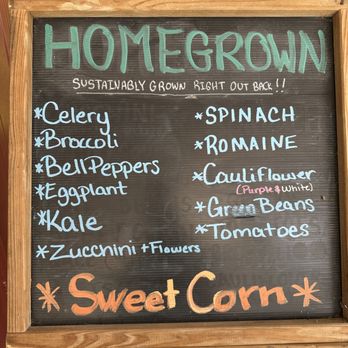 HOMEGROWN
SUSTAINABLY GROWN RIGHT OUT BACK!!
*Celery
*Broccoli
*BellPeppers
*Eggplant
*Kale
*Zucchini + Flowers
*SPINACH
*ROMAINE
*Cauliflower
(Purple & White)
*Green Beans
*Tomatoes
*Sweet Corn*